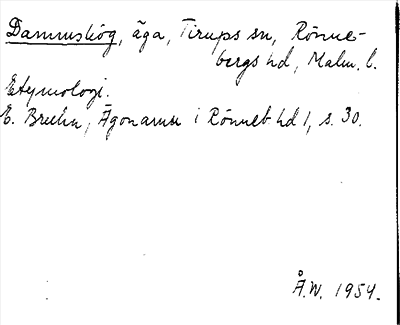 Dammshög, äga, Tirups sn, Rönne-
bergs hd, Malm. l.
Etymologi.
E. Bruhn, Ägonamn i Rönneb hd 1, s. 30.
Å.W. 1954.